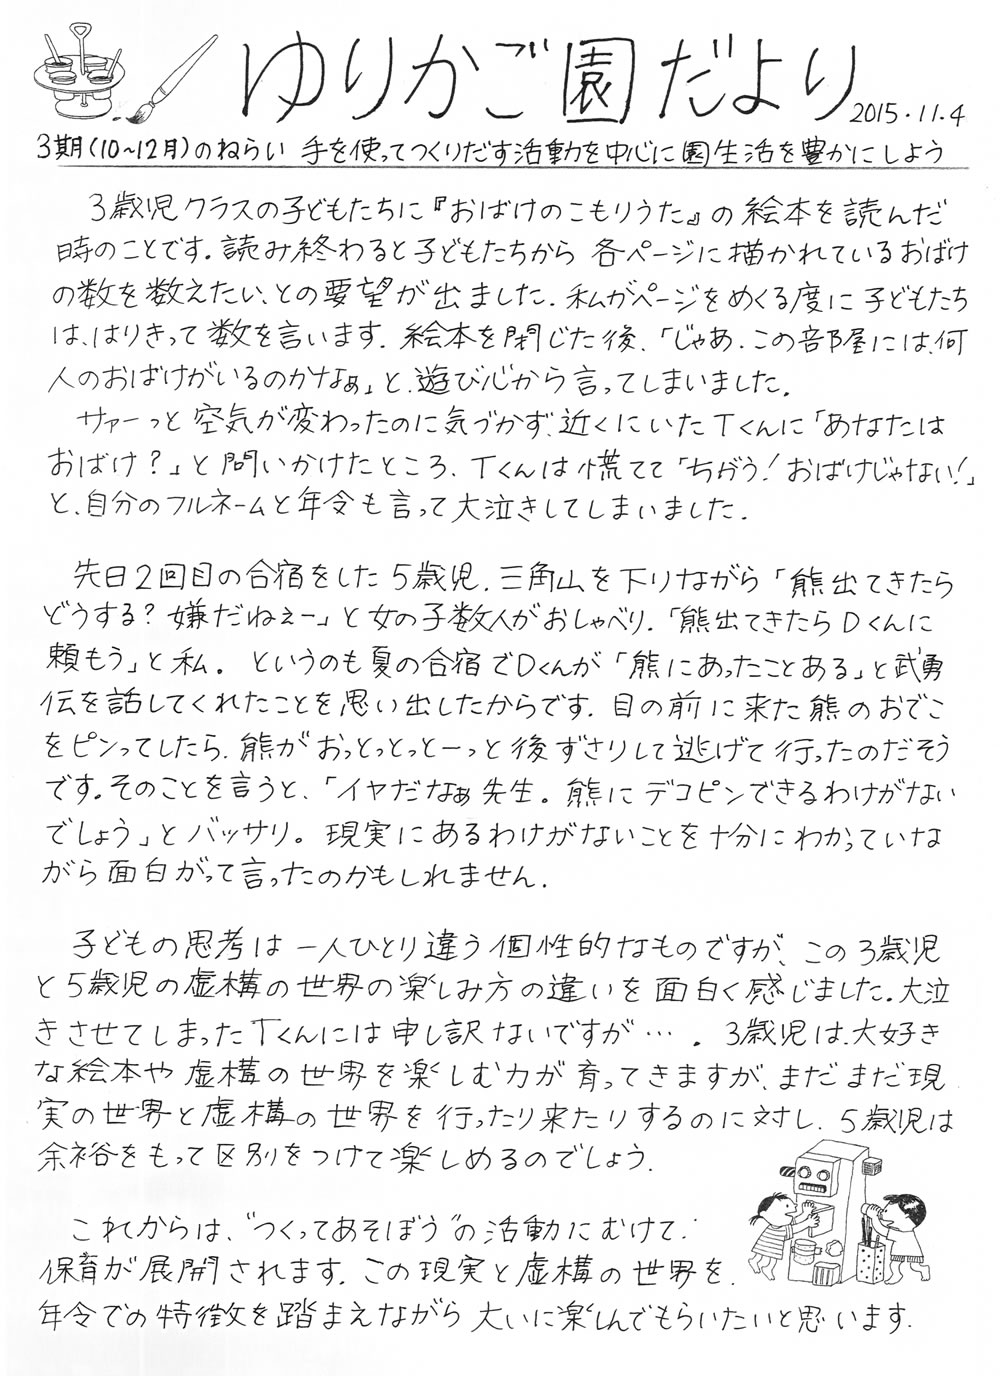 ゆりかご園だより
2015.11.4
3期(10~12月)のねらい 手を使ってつくりだす活動を中心に園生活を豊かにしよう
3歳児クラスの子どもたちに『おばけのこもりうた』の絵本を読んだ
時のことです。読み終わると子どもたちから 各ページに描かれているおばけ
の数を数えたい、との要望が出ました。私がページをめくる度に子どもたち
は、はりきって数を言います。絵本を閉じた後、「じゃあ、この部屋には、何
人のおばけがいるのかなぁ」と、遊び心から言ってしまいました。
サァーっと空気が変わったのに気づかず、近くにいたTくんに「あなたは
おばけ?」と問いかけたところ、Tくんは慌てて「ちがう!おばけじゃない!」
と、自分のフルネームと年令も言って大泣きしてしまいました。
先日2回目の合宿をした5歳児。三角山を下りながら「熊出てきたら
どうする?嫌だねぇー」と女の子数人がおしゃべり。「熊出てきたらDくんに
頼もう」と私。というのも夏の合宿でDくんが「熊にあったことある」と武勇
伝を話してくれたことを思い出したからです。目の前に来た熊のおでこ
をピンってしたら、熊がおっとっとっとーっと後ずさりして逃げて行ったのだそう
です。そのことを言うと、「イヤだなぁ先生。熊にデコピンできるわけがない
でしょう」とバッサリ。現実にあるわけがないことを十分にわかっていな
がら面白がって言ったのかもしれません。
子どもの思考は一人ひとり違う個性的なものですが、この3歳児
と5歳児の虚構の世界の楽しみ方の違いを面白く感じました。大泣
きさせてしまったTくんには申し訳ないですが…。3歳児は、大好き
な絵本や虚構の世界を楽しむ力が育ってきますが、まだまだ現
実の世界と虚構の世界を行ったり来たりするのに対し、5歳児は
余裕をもって区別をつけて楽しめるのでしょう。
これからは、"つくってあそぼう"の活動にむけて、
保育が展開されます。この現実と虚構の世界を、
年令での特徴を踏まえながら大いに楽しんでもらいたいと思います。